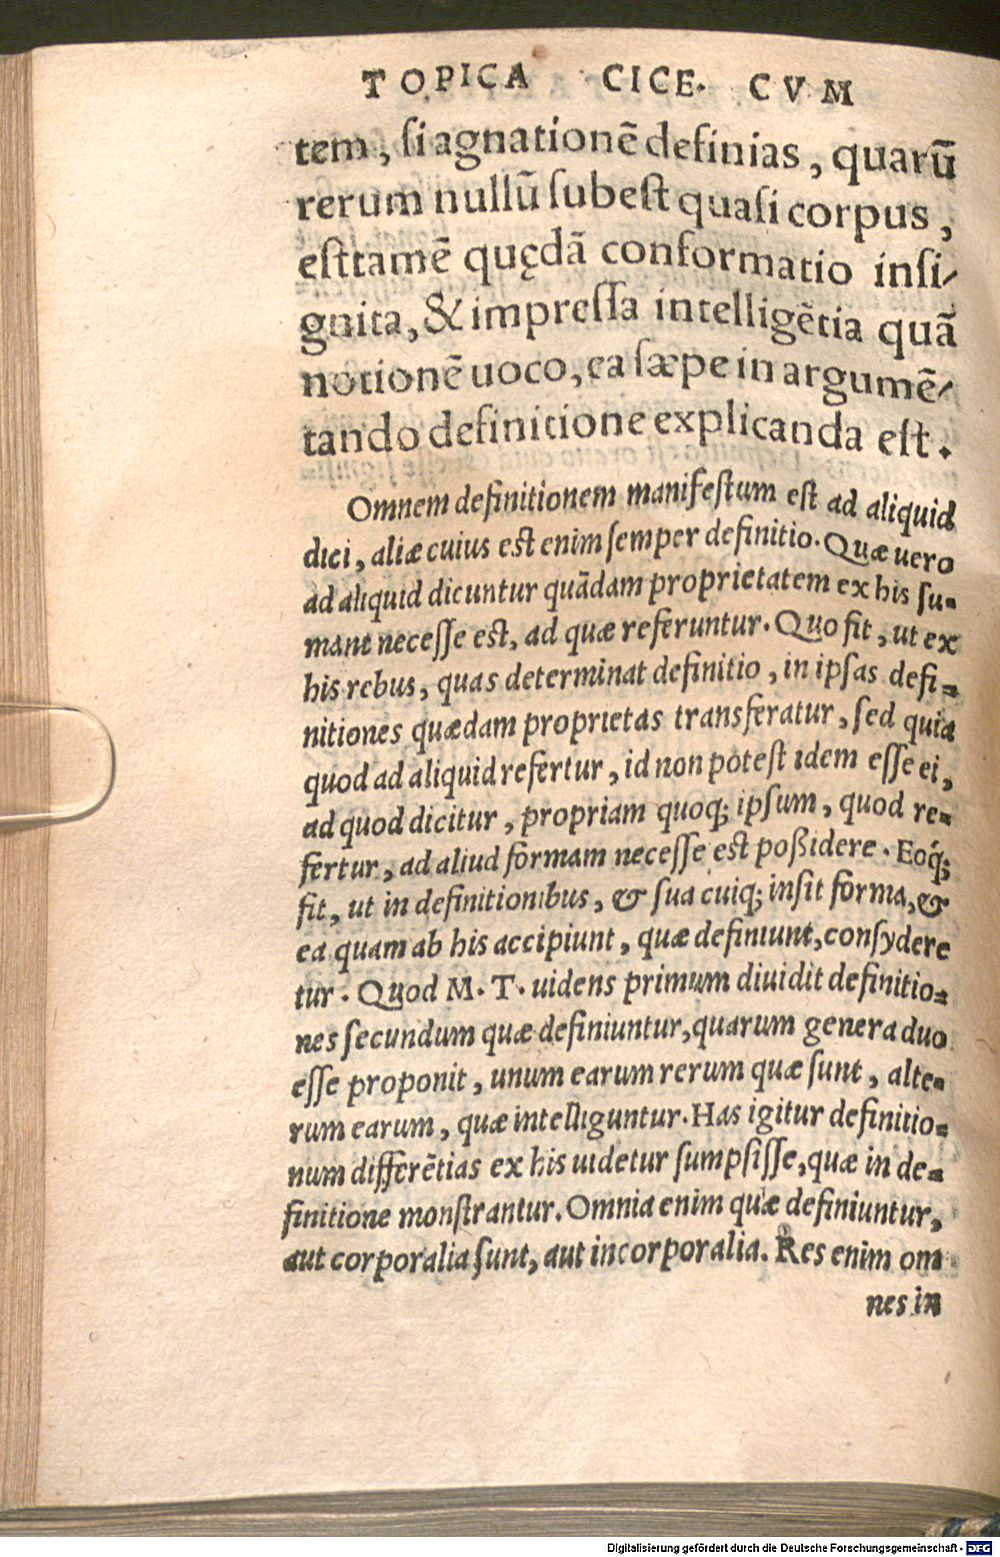 TOPICA CICE. CVM
tem, ſi agnationē definias, quarū
rerum nullū ſubeſt quaſi corpus,
eſttamē quędā conformatio inſi⸗
gnita, & impreſſa intelligētia quā
notionē uoco, ea ſæpe in argumē⸗
tando definitione explicanda eſt.
Omnem definitionem manifeſtum eſt ad aliquid
dici, aliæ cuius eſt enim ſemper definitio. Quæ uero
ad aliquid dicuntur quādam proprietatem ex his ſu⸗
mant neceſſe eſt, ad quæ referuntur. Quo fit, ut ex
his rebus, quas determinat definitio, in ipſas defi⸗
nitiones quædam proprietas transferatur, ſed quia
quod ad aliquid refertur, id non poteſt idem eſſe ei,
ad quod dicitur, propriam quoq; ipſum, quod re⸗
fertur, ad aliud formam neceſſe eſt poßidere. Eoq́;
fit, ut in definitionibus, & ſua cuiq; inſit forma, &
ea quam ab his accipiunt, quæ definiunt, conſydere
tur. Quod M. T. uidens primum diuidit definitio⸗
nes ſecundum quæ definiuntur, quarum genera duo
eſſe proponit, unum earum rerum quæ ſunt, alte⸗
rum earum, quæ intelliguntur. Has igitur definitio⸗
num differētias ex his uidetur ſumpſiſſe, quæ in de⸗
finitione monſtrantur. Omnia enim quæ definiuntur,
aut corporalia ſunt, aut incorporalia. Res enim om
nes in
Digitalisierung gefördert durch die Deutsche Forschungsgemeinschaft - DFG